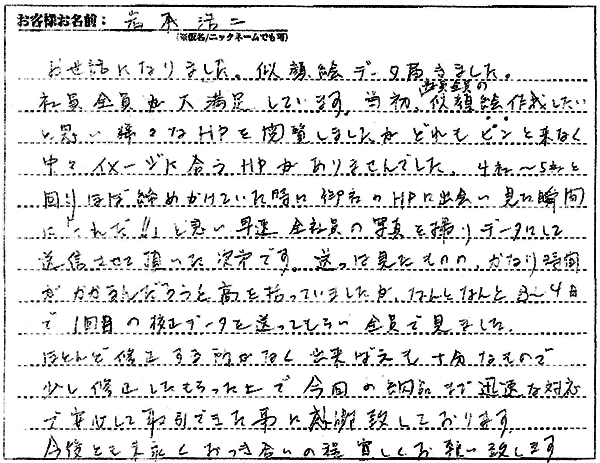 お客様お名前： 岩本 浩二
（※仮名／ニックネームでも可）
お世話になりました。似顔絵データ届きました。
社員全員が大満足しています。当初、社員全員の似顔絵作成したい
と思い様々なHPを閲覧しましたがどれもピンと来なく
中々イメージに合うHPがありませんでした。4社〜5社と
回りほぼ諦めかけていた時に御社のHPに出会い見た瞬間
に「これだ!!」と思い早速全社員の写真を撮りデータにして
送信させて頂いた次第です。送っは見たものの、かなり時間
がかかるんだろうと高を括っていましたが、なんとなんと3〜4日
で1回目の校正データを送ってもらい全員で見ました。
ほとんど修正する所がなく出来ばえも十分なもので
少し修正してもらった上で今回の納品まで迅速な対応
で安心して取引できた事に感謝致しております。
今後とも末永くおつき合いの程宜しくお願い致します